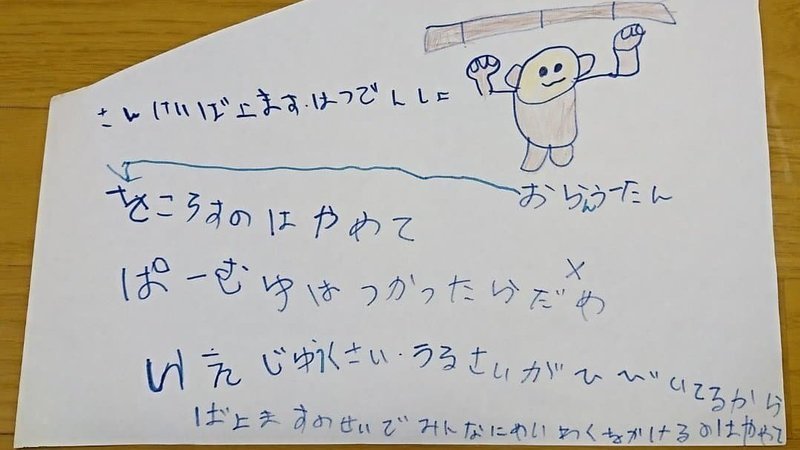 さんけいばよます.はつでんしょ
おらんうーたん
をころすのはやめて
ぱーむゆはつかったらだめ
いえじゅうくさい・うるさいがひびいてるから
ばよますのせいでみんなにめいわくをかけるのはやめて